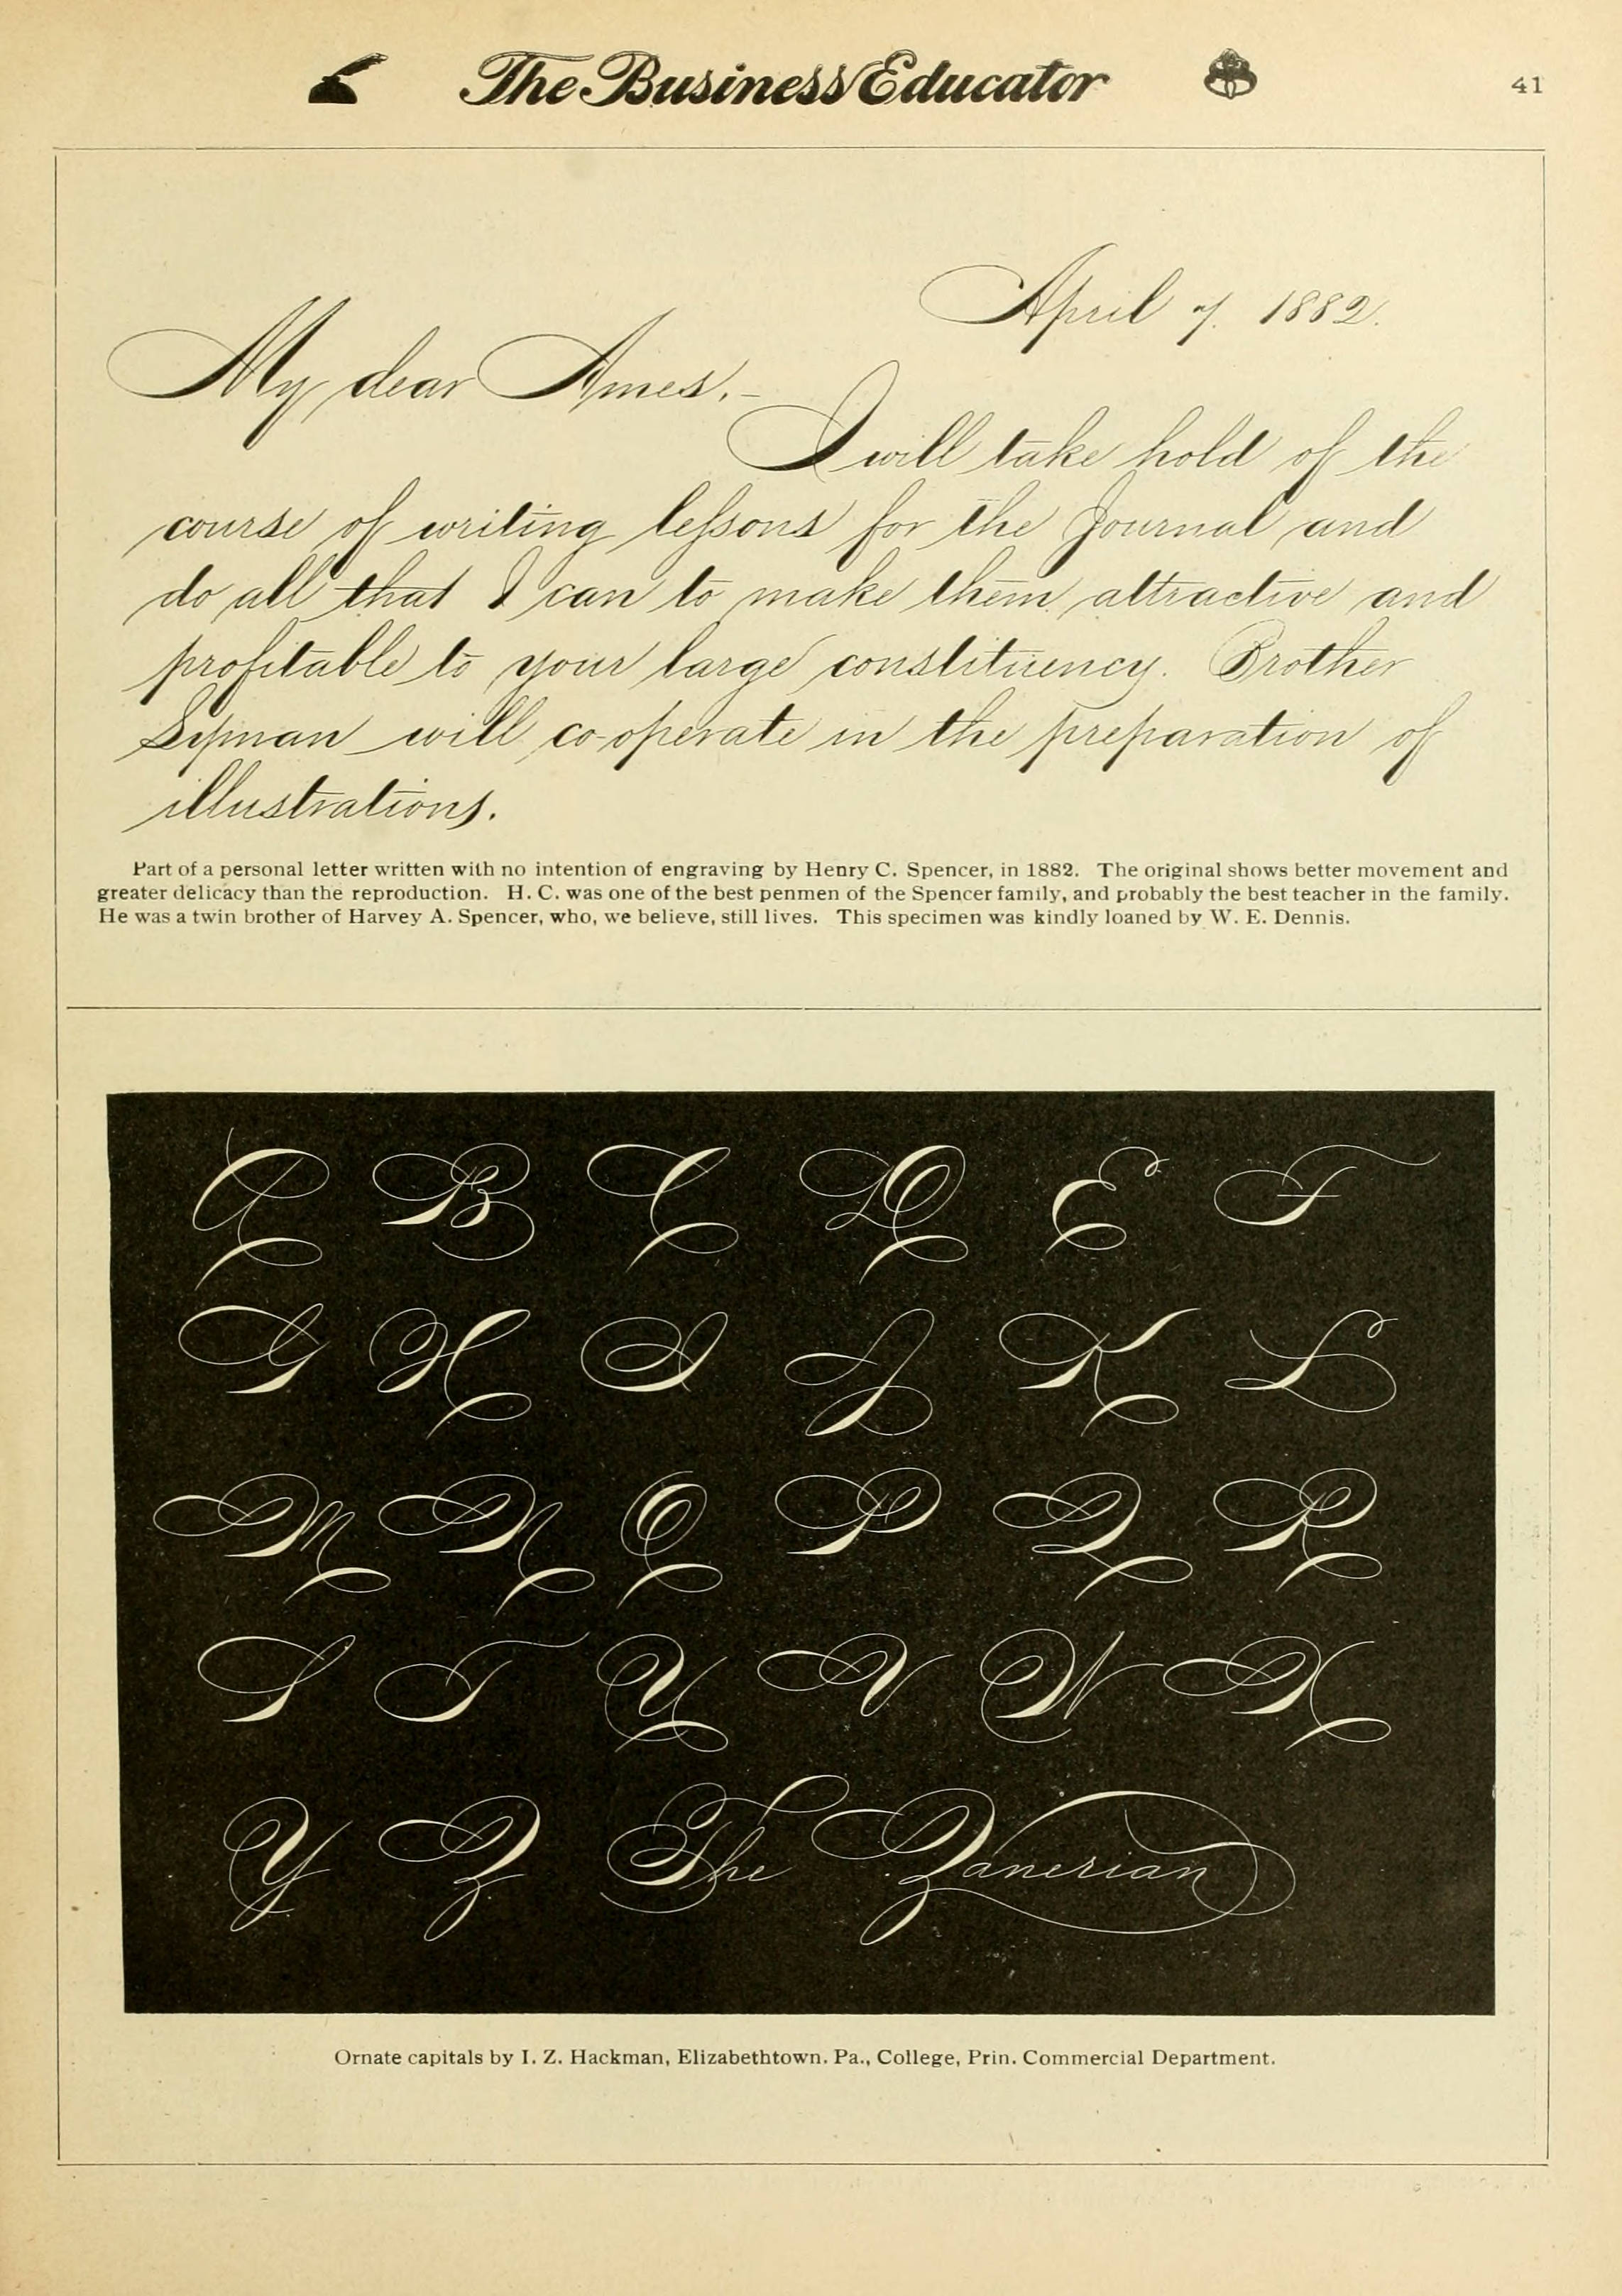 The Business Educator
41
April 7. 1882.
My dear Ames,-
I will take hold of the
course of writing lessons for the Journal and
do all that I can to make them attractive and
profitable to your large constituency. Brother
Lyman will co-operate in the preparation of
illustrations.
Part of a personal letter written with no intention of engraving by Henry C. Spencer, in 1882. The original shows better movement and
greater delicacy than the reproduction. H. C. was one of the best penmen of the Spencer family, and probably the best teacher in the family.
He was a twin brother of Harvey A. Spencer, who, we believe, still lives. This specimen was kindly loaned by W. E. Dennis.
A B C D E F
G H I J K L
M N O P Q R
S T U V W X
Y Z The Zanerian
Ornate capitals by I. Z. Hackman, Elizabethtown. Pa., College, Prin. Commercial Department.